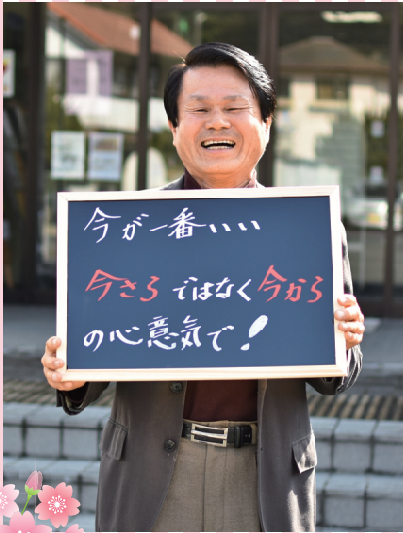 今が一番いい
今さらではなく今から
の心意気で！